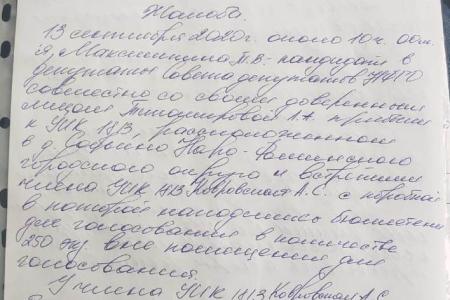 Жалоба.
13 сентября 2020г. около 10ч. 00м.
я, Максимкина Т.В. - кандидат в
депутаты Совета депутатов НФГО
совместно со своим доверенным
лицом Тимошировой Л.А. прибыли
к УИК 1813, расположенном
в д. Софьино Наро-Фоминского
городского округа и встретили
члена УИК 1813 Ковровскую А.С. с коробкой
в которой находились бюллетени
для голосования в количестве
250 экз. вне помещения для
голосования.
У члена УИК 1813 Ковровская А.С.